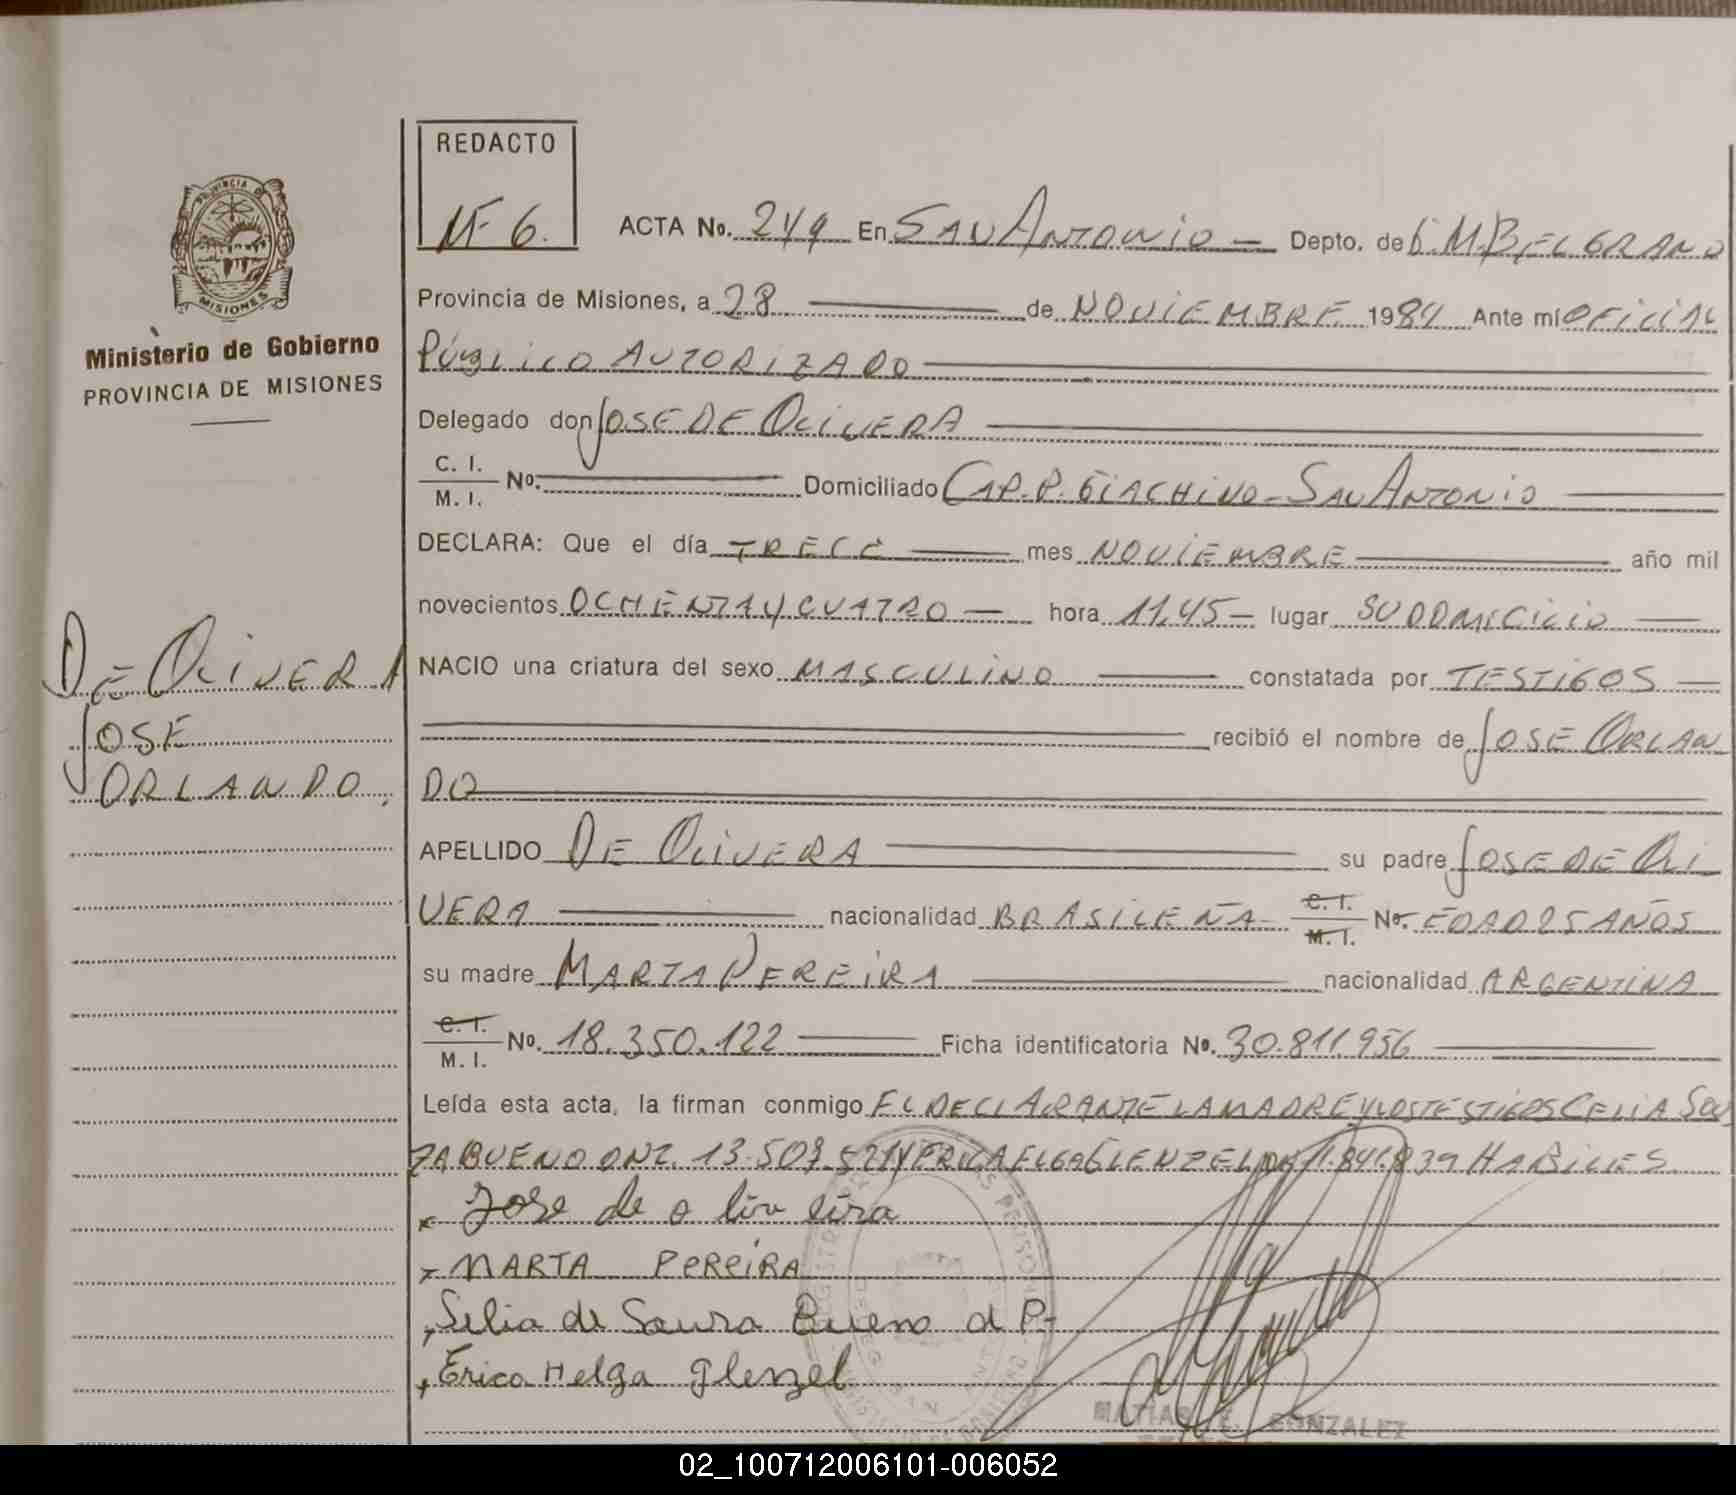 REDACTO
Nº 6.
ACTA No. 249 En SAN ANTONIO — Depto. de G.M.BELGRANO
Provincia de Misiones, a 28 de NOVIEMBRE 1984 Ante mí OFICIAL
PÚBLICO AUTORIZADO
PROVINCIA DE
MISIONES
Ministerio de Gobierno
PROVINCIA DE MISIONES
Delegado don JOSE DE OLIVERA
C. I.
M. I. No. Domiciliado CAP. P. GIACHINO - SAN ANTONIO
DECLARA: Que el día TRECE mes NOVIEMBRE año mil
novecientos OCHENTA Y CUATRO — hora 11,45 — lugar SU DOMICILIO
DE OLIVERA
JOSE
ORLANDO.
NACIO una criatura del sexo MASCULINO constatada por TESTIGOS —
recibió el nombre de JOSE ORLAN
DO
APELLIDO DE OLIVERA su padre JOSE DE OLI
VERA nacionalidad BRASILEÑA C. I. M. I. No. EDAD 25 AÑOS
su madre MARTA PEREIRA nacionalidad ARGENTINA
C. I.
M. I. No. 18.350.122 Ficha identificatoria No. 30.811.956
Leída esta acta, la firman conmigo EL DECLARANTE LA MADRE Y LOS TESTIGOS CELIA SOU
ZA BUENO DNI. 13.507. Y ERICA ELGA GLENZEL HABILES
x Jose de o liv eira
x MARTA PEREIRA
x Selia de Saura Bueno d P.
x Erica Helga Glenzel
MATIAS E. GONZALEZ
02_100712006101-006052